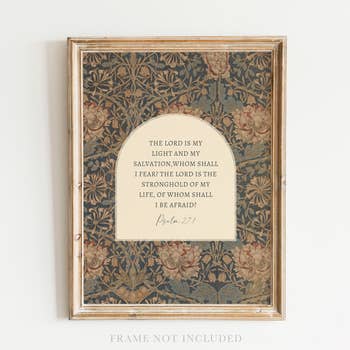 THE LORD IS MY
LIGHT AND MY
SALVATION,WHOM SHALL
I FEAR? THE LORD IS THE
STRONGHOLD OF MY
LIFE, OF WHOM SHALL
I BE AFRAID?
Psalm 27:1
FRAME NOT INCLUDED